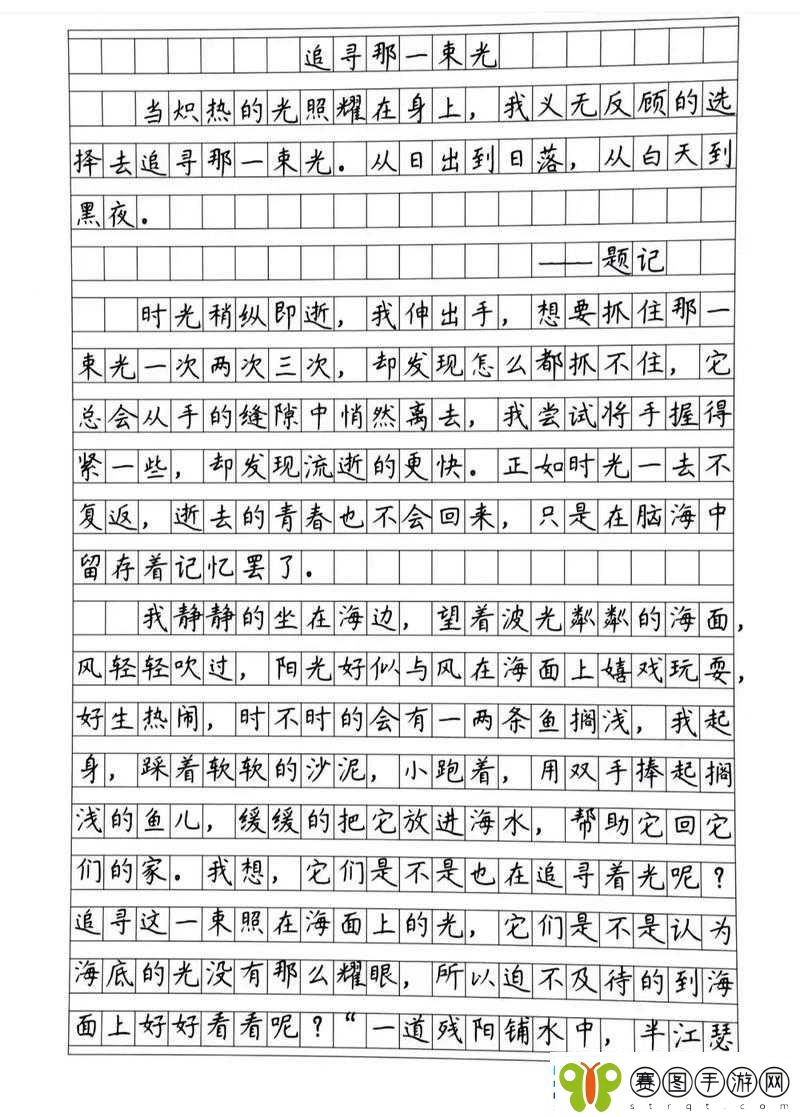 追寻那一束光
当炽热的光照耀在身上，我义无反顾的选
择去追寻那一束光。从日出到日落，从白天到
黑夜。
——题记
时光稍纵即逝，我伸出手，想要抓住那一
束光一次两次三次，却发现怎么都抓不住，它
总会从手的缝隙中悄然离去，我尝试将手握得
紧一些，却发现流逝的更快。正如时光一去不
复返，逝去的青春也不会回来，只是在脑海中
留存着记忆罢了。
我静静的坐在海边，望着波光粼粼的海面，
风轻轻吹过，阳光好似与风在海面上嬉戏玩耍，
好生热闹，时不时的会有一两条鱼搁浅，我起
身，踩着软软的沙泥，小跑着，用双手捧起搁
浅的鱼儿，缓缓的把它放进海水，帮助它回它
们的家。我想，它们是不是也在追寻着光呢？
追寻这一束照在海面上的光，它们是不是认为
海底的光没有那么耀眼，所以迫不及待的到海
面上好好看看呢？“一道残阳铺水中，半江瑟
赛图手游网
strqt.com